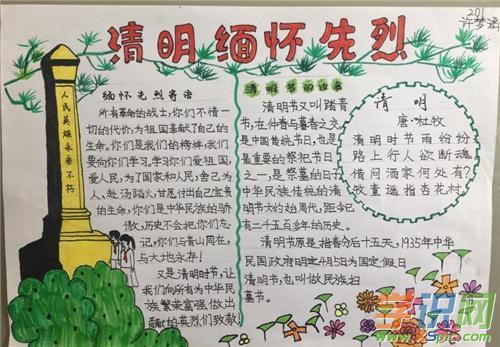 清明缅怀先烈
201
人民英雄永垂不朽
缅怀先烈寄语
所有革命的战士,你们不惜一
切的代价,为祖国奉献了自己的
生命。你们是我们的榜样,我们
要向你们学习。学习你们爱祖国,
爱人民,为了国家和人民,舍己为
人、赴汤蹈火,甘愿付出自己宝贵
的生命,你们是中华民族的骄
傲,历史不会把你们忘
记,你们与青山同在,
与大地永存!
又是清明时节,让
我们向所有为中华民
族繁荣富强做出
贡献的英烈们致敬
清明节的由来
清明节又叫踏青
节,在仲春与暮春之交,
是中国传统节日,也是
最重要的祭祀节日
之一,是祭墓的日子
中华民族传统的清
明节大约始周代,距今已
有二千五百多年的历史。
清明节原是指春分后十五天,1935年中华
民国政府明定4月5日为国定假日
清明节,也叫做民族扫
墓节。
清明
唐·杜牧
清明时节雨纷纷
路上行人欲断魂
借问酒家何处有?
牧童遥指杏花村
学识网